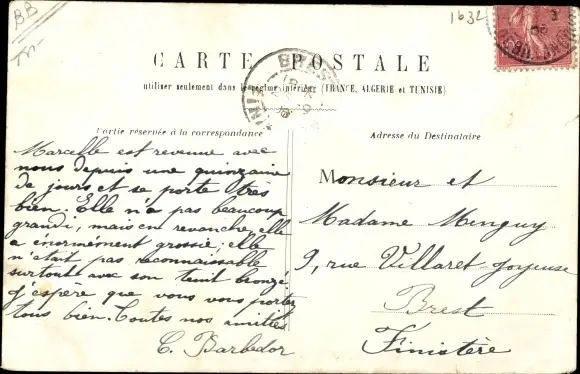 BB
1632
CARTE POSTALE
BREST
utiliser seulement dans le régime intérieur (FRANCE, ALGERIE et TUNISIE)
Partie réservée à la correspondance
Adresse du Destinataire
Marcelle est revenue avec
nous depuis une quinzaine
de jours et se porte très
bien. Elle n'a pas beaucoup
grandi, mais en revanche, elle
a énormément grossie; elle
n'était pas reconnaissable
surtout avec son teint bronzé.
J'espère que vous vous portez
tous bien. Toutes nos amitiés
C. Barbedor
Monsieur et
Madame Minguy
9, rue Villaret-Joyeuse
Brest
Finistère